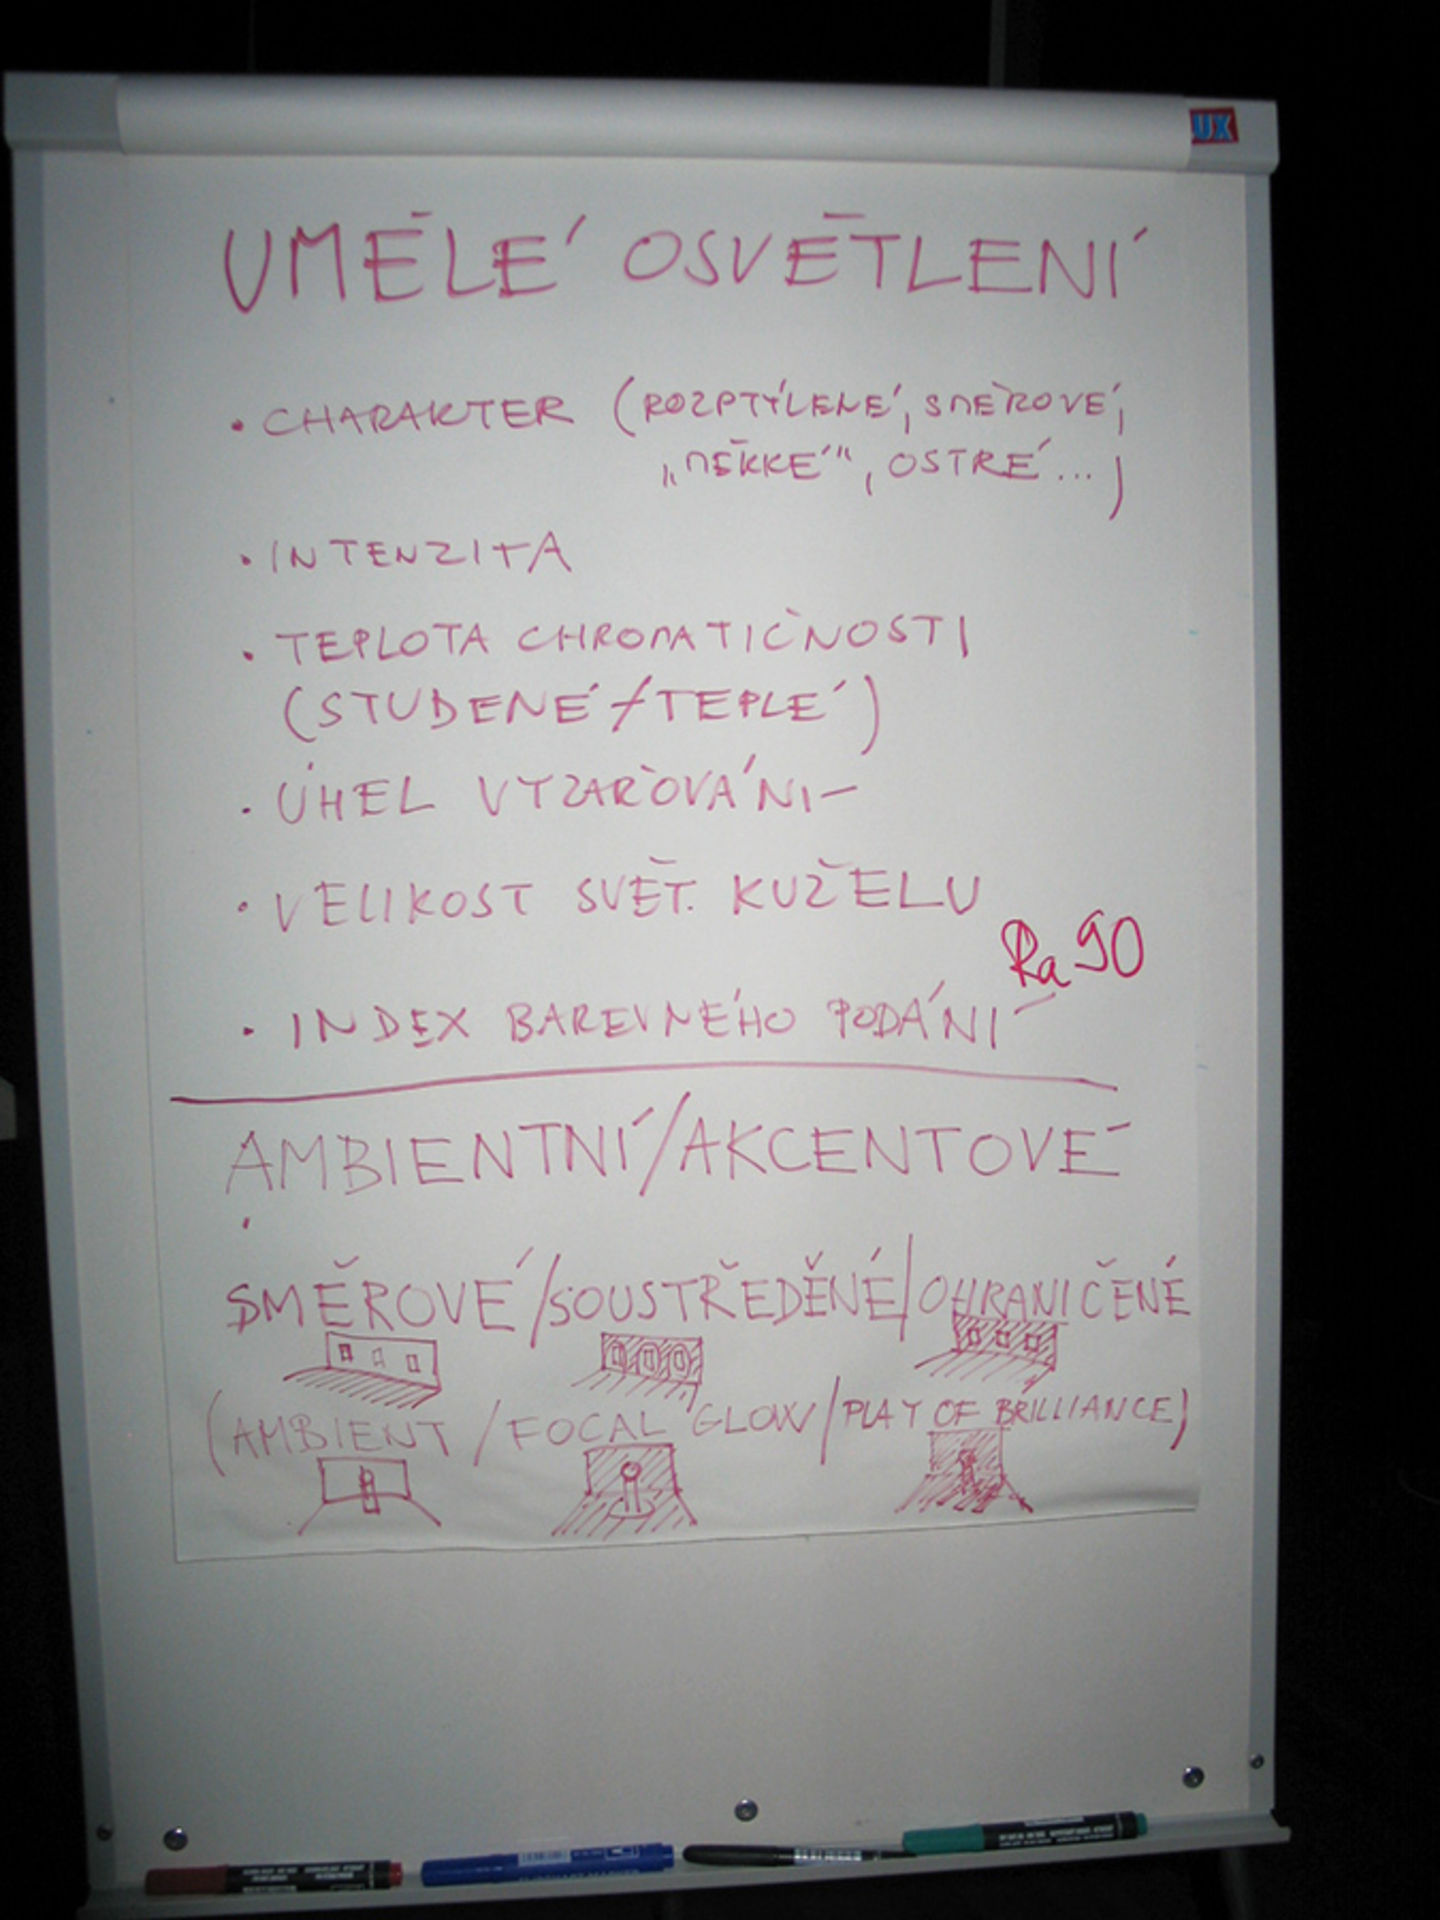 UX
UMĚLÉ OSVĚTLENÍ
• CHARAKTER (ROZPTÝLENÉ, SMĚROVÉ,
„MĚKKÉ“, OSTRÉ...)
• INTENZITA
• TEPLOTA CHROMATIČNOSTI
(STUDENÉ/TEPLÉ)
• ÚHEL VYZAŘOVÁNÍ
• VELIKOST SVĚT. KUŽELU
Ra 90
• INDEX BAREVNÉHO PODÁNÍ
AMBIENTNÍ/AKCENTOVÉ
•
SMĚROVÉ/SOUSTŘEDĚNÉ/OHRANIČENÉ
(AMBIENT/FOCAL GLOW/PLAY OF BRILLIANCE)